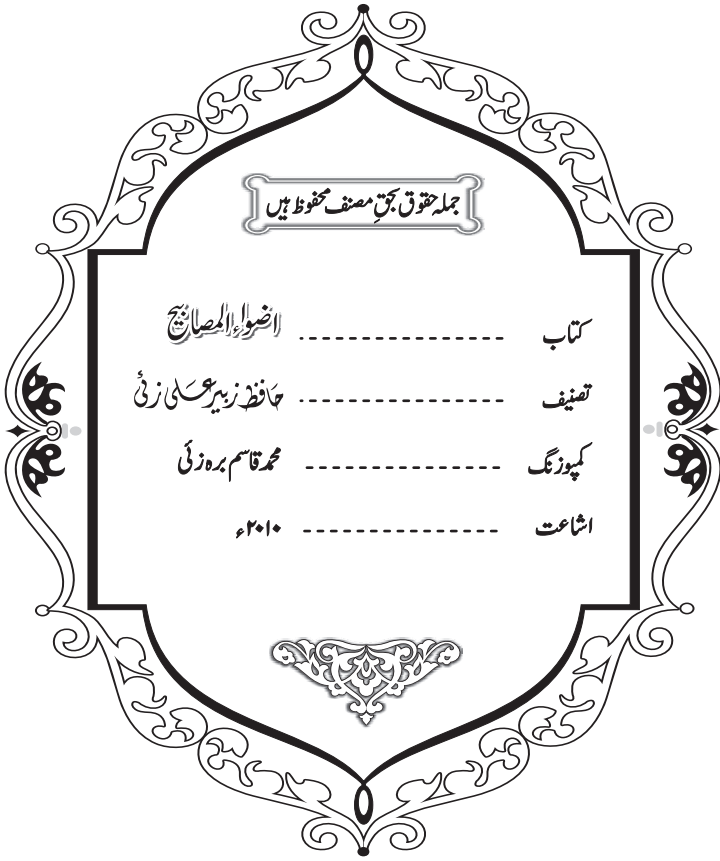 جملہ حقوق بحقِ مصنف محفوظ ہیں
کتاب ---------------- اضواء المصابیح
تصنیف ---------------- حافظ زبیر علی زئی
کمپوزنگ ---------------- محمد قاسم برہ زئی
اشاعت ---------------- ۲۰۱۰ء